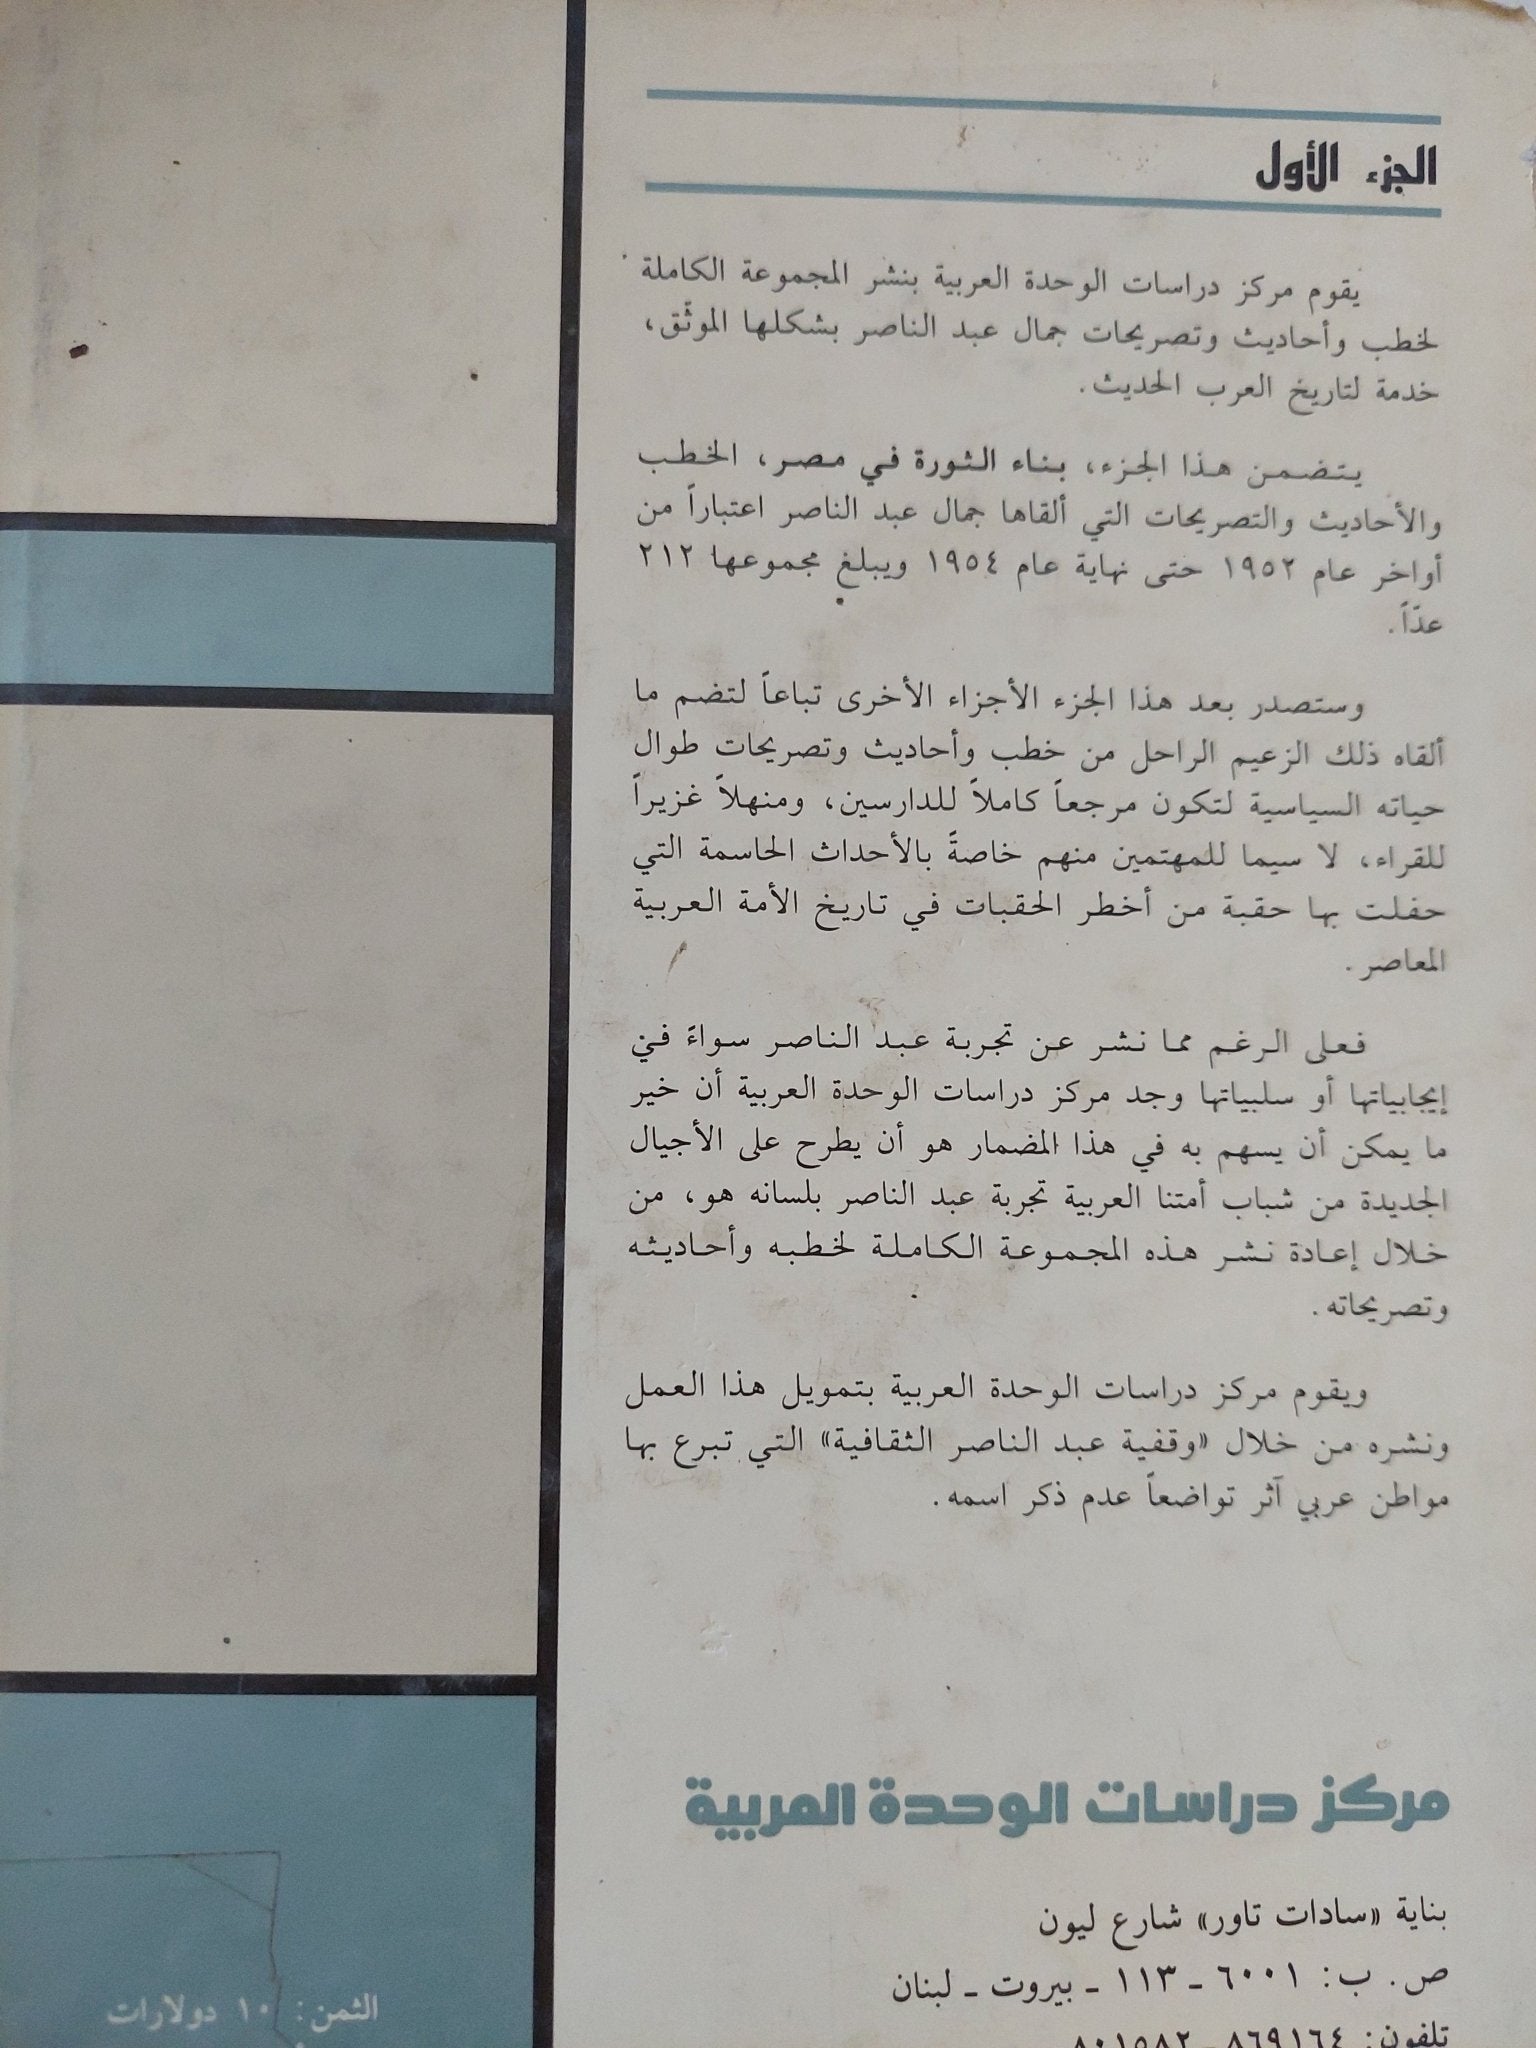 الجزء الأول
يقوم مركز دراسات الوحدة العربية بنشر المجموعة الكاملة
لخطب وأحاديث وتصريحات جمال عبد الناصر بشكلها الموثّق،
خدمة لتاريخ العرب الحديث.
يتضمن هذا الجزء، بناء الثورة في مصر، الخطب
والأحاديث والتصريحات التي ألقاها جمال عبد الناصر اعتباراً من
أواخر عام ١٩٥٢ حتى نهاية عام ١٩٥٤ ويبلغ مجموعها ٢١٢
عدّاً.
وستصدر بعد هذا الجزء الأجزاء الأخرى تباعاً لتضم ما
ألقاه ذلك الزعيم الراحل من خطب وأحاديث وتصريحات طوال
حياته السياسية لتكون مرجعاً كاملاً للدارسين، ومنهلاً غزيراً
للقراء، لا سيما للمهتمين منهم خاصةً بالأحداث الحاسمة التي
حفلت بها حقبة من أخطر الحقبات في تاريخ الأمة العربية
المعاصر.
فعلى الرغم مما نشر عن تجربة عبد الناصر سواءً في
إيجابياتها أو سلبياتها وجد مركز دراسات الوحدة العربية أن خير
ما يمكن أن يسهم به في هذا المضمار هو أن يطرح على الأجيال
الجديدة من شباب أمتنا العربية تجربة عبد الناصر بلسانه هو، من
خلال إعادة نشر هذه المجموعة الكاملة لخطبه وأحاديثه
وتصريحاته.
ويقوم مركز دراسات الوحدة العربية بتمويل هذا العمل
ونشره من خلال «وقفية عبد الناصر الثقافية» التي تبرع بها
مواطن عربي آثر تواضعاً عدم ذكر اسمه.
مركز دراسات الوحدة العربية
بناية «سادات تاور» شارع ليون
ص. ب: ٦٠٠١ - ١١٣ - بيروت - لبنان
تلفون: ٨٦٩١٦٤ - ٨٠١٥٨٢
الثمن: ١٠ دولارات